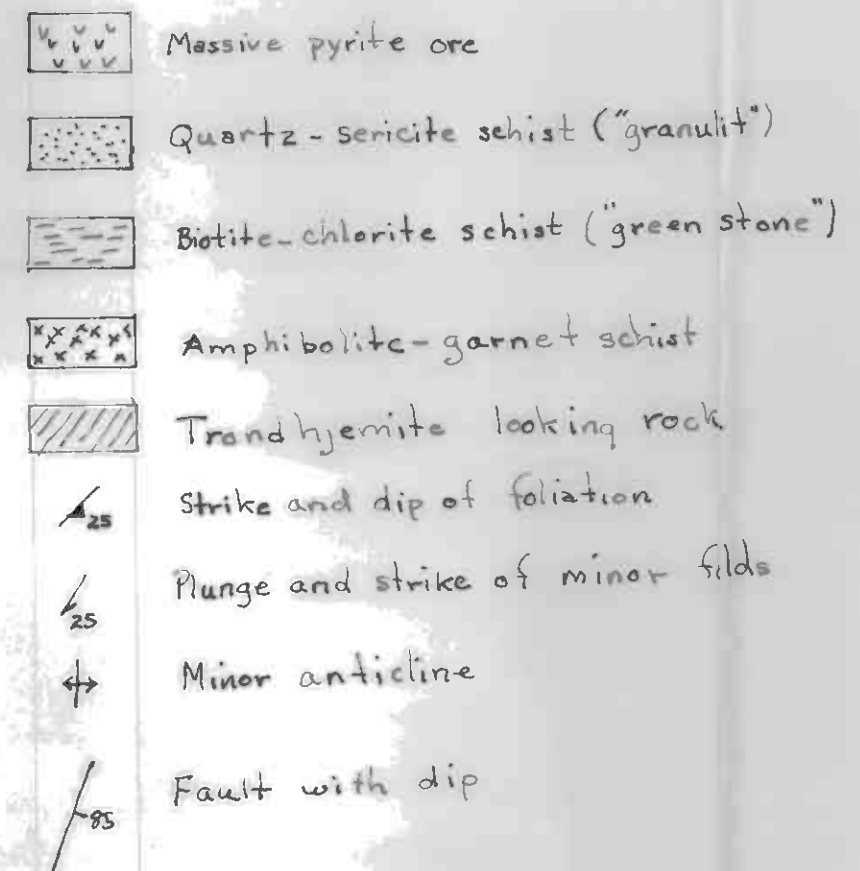 Massive pyrite ore
Quartz-sericite schist ("granulit")
Biotite-chlorite schist ("green stone")
Amphibolite-garnet schist
Trondhjemite looking rock
25 Strike and dip of foliation
25 Plunge and strike of minor filds
Minor anticline
85 Fault with dip